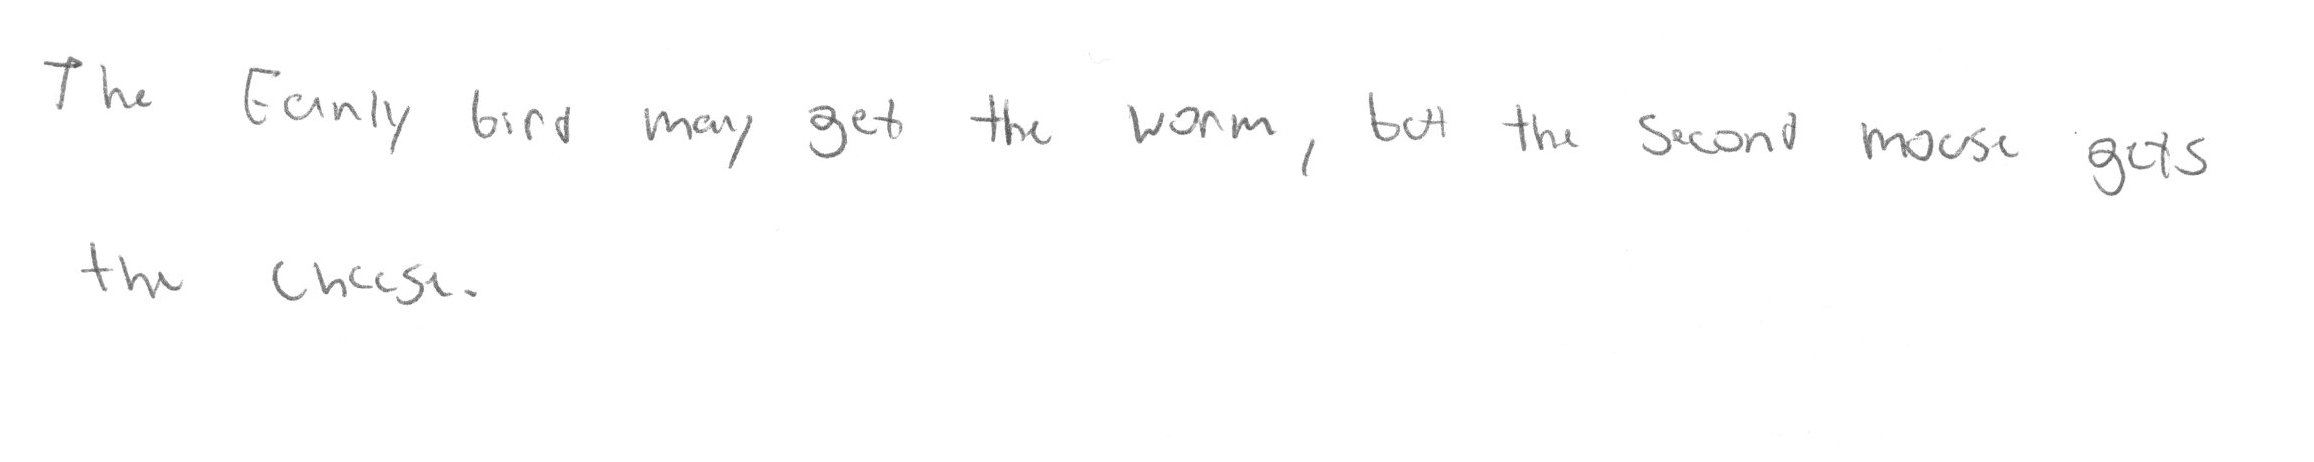 The Early bird may get the worm, but the second mouse gets
the cheese.